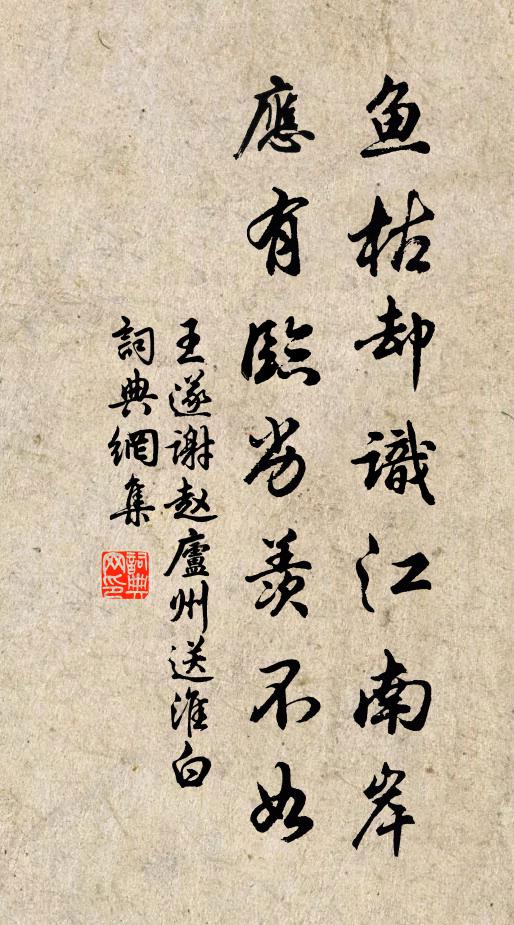 鱼枯却識江南岸
應有臨旁羨不如
王遂謝赵廬州送淮白
詞典網集
詞典网印